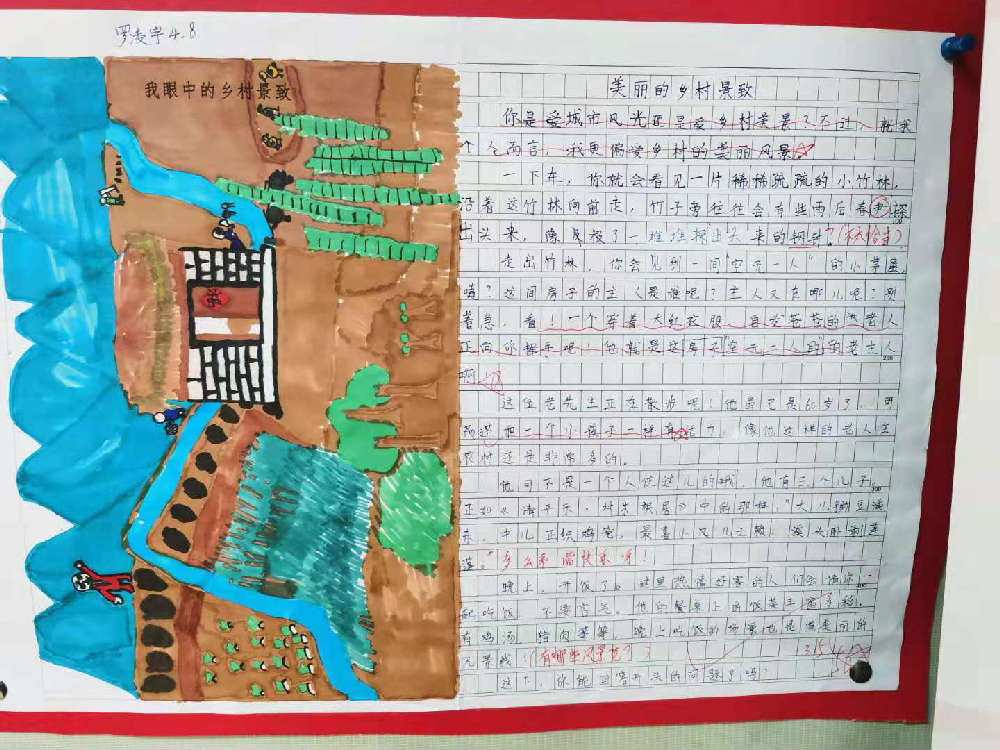 罗凌宇4.8
我眼中的乡村景致
美丽的乡村景致
你是爱城市风光还是爱乡村美景?不过,就我
个人而言,我更偏爱乡村的美丽风景。
一下车,你就会看见一片稀稀疏疏的小竹林,
沿着这竹林向前走,竹子旁往往会有些雨后春尹探
出头来,像是 了一堆堆探出头来的
走出竹林,你会见到一间“空无一人”的小草屋,
嘻?这间房子的主人是谁呢?主人又在哪儿呢?别
着急,看!一个穿着大红衣服,白发苍苍的老人
正向你招手呢!他就是这房子空无一人的老主人
啊!
这位老先生正在散步呢!他虽已是60岁了,可
却还和一个小孩子一样有活力,像他这样的老人在
农村还是非常多的。
他可不是一个人住这儿的哦,他有三个儿子。
正如《清平乐·村居》中的那样,“大儿锄豆溪
东,中儿正织鸡笼,最喜小儿亡赖,溪头卧剥莲
蓬。”多么和谐快乐呀!
晚上,开饭了。这里热情好客的人们会请你一
起吃饭,不要客气。他们餐桌上的饭菜丰富多彩,
有鸡汤、猪肉等等,晚上吃饭的场景也是
(有哪些风景呢?)
315
这下,你能回答开头的问题了吗?